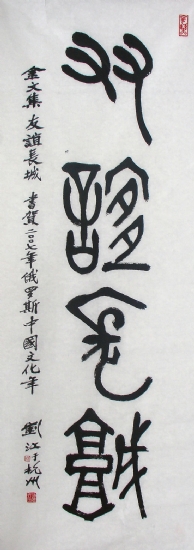 友谊长城
金文集友谊長城 書賀二〇〇七年俄罗斯中國文化年
劉江于杭州